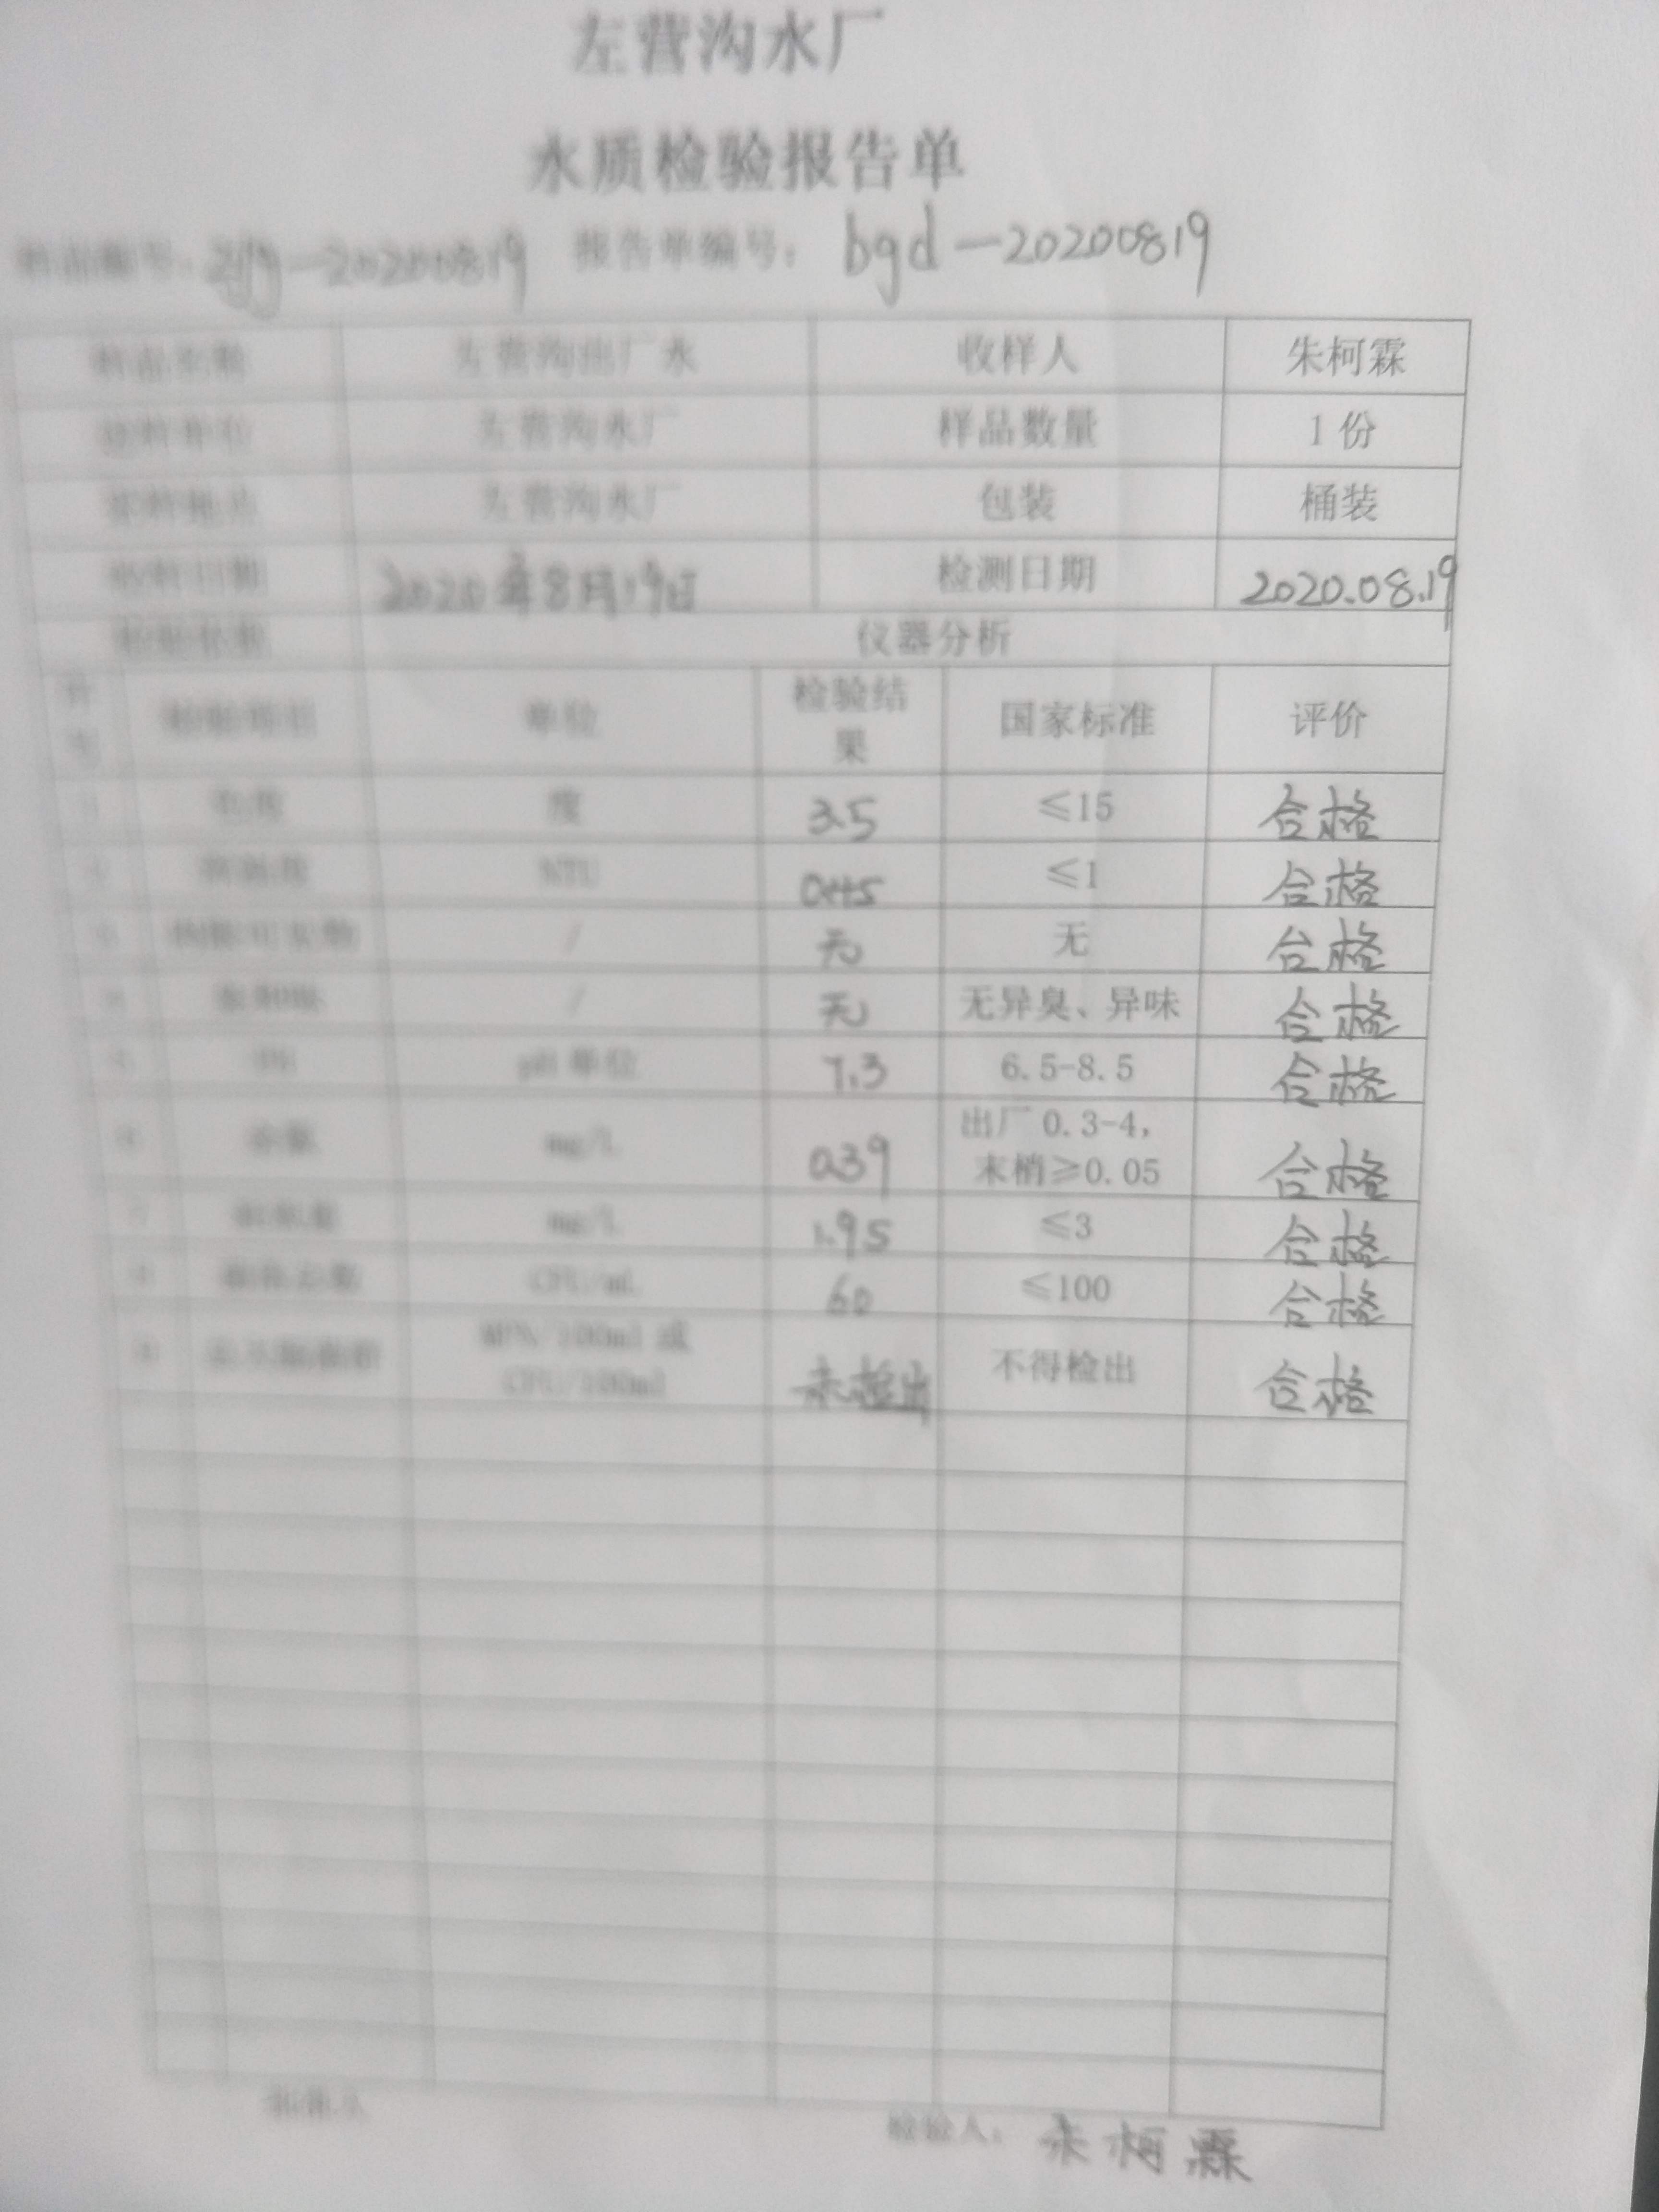 左营沟水厂
水质检验报告单
样品编号：zyg-20200819 报告单编号：bgd-20200819
样品名称 左营沟出厂水 收样人 朱柯霖
左营沟水厂 样品数量 1份
左营沟水厂 包装 桶装
2020年8月19日 检测日期 2020.08.19
仪器分析
单位 检验结果 国家标准 评价
色度 度 3.5 ≤15 合格
浑浊度 NTU 0.45 ≤1 合格
肉眼可见物 / 无 无 合格
臭和味 / 无 无异臭、异味 合格
pH单位 7.3 6.5-8.5 合格
余氯 mg/L 0.39 出厂0.3-4，末梢≥0.05 合格
耗氧量 mg/L 1.95 ≤3 合格
菌落总数 CFU/mL 60 ≤100 合格
总大肠菌群 MPN/100ml或CFU/100ml 未检出 不得检出 合格
检验人：朱柯霖